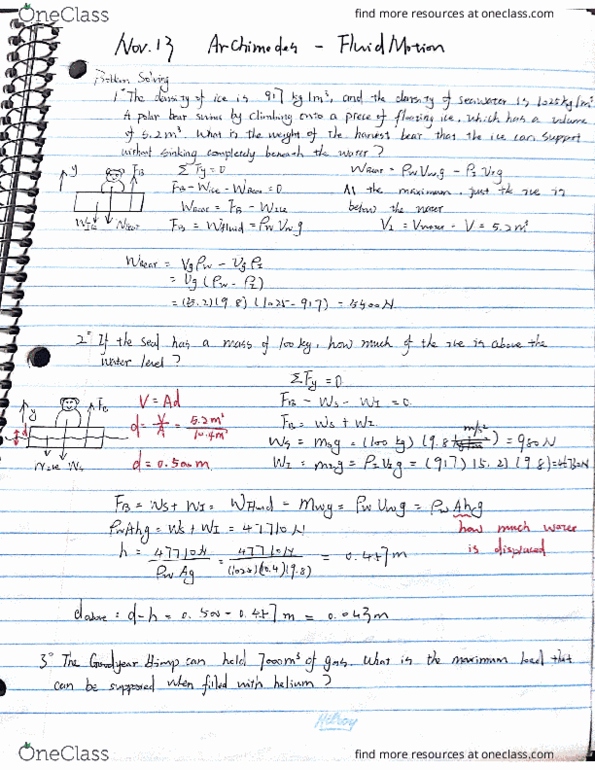 OneClass
find more resources at oneclass.com
Nov. 13 Archimedes - Fluid Motion
Problem Solving
1° The density of ice is 917 kg/m³, and the density of seawater is 1025 kg/m³.
A polar bear swims by climbing onto a piece of floating ice, which has a volume
of 5.2 m³. What is the weight of the heaviest bear that the ice can support
without sinking completely beneath the water?
y FB
Wice WBear
ΣFy = 0
FB - Wice - WBear = 0
WBear = FB - Wice
FB = Wfluid = ρw Vw g
WBear = ρw Vw g - ρI VI g
At the maximum, just the ice is
below the water
VI = Vwater = V = 5.2 m³
WBear = Vg ρw - Vg ρI
= Vg (ρw - ρI)
= (5.2)(9.8)(1025-917) = 5500 N
2° If the seal has a mass of 100 kg, how much of the ice is above the
water level?
y FB
d
Wice Ws
V = Ad
d = V/A = 5.2 m³/10.4 m²
d = 0.500 m
ΣFy = 0
FB - Ws - WI = 0
FB = Ws + WI
Ws = msg = (100 kg)(9.8 m/s²) = 980 N
WI = mIg = ρI VI g = (917)(5.2)(9.8) = 46730 N
FB = Ws + WI = Wfluid = mwg = ρw Vw g = ρw Ahg
how much water
is displaced
ρw Ahg = Ws + WI = 47710 N
h = 47710 N / ρw Ag = 47710 N / (1025)(10.4)(9.8) = 0.457 m
dabove = d-h = 0.500 - 0.457 m = 0.043 m
3° The Goodyear Blimp can hold 7000 m³ of gas. What is the maximum load that
can be supported when filled with helium?
Hilroy
OneClass
find more resources at oneclass.com